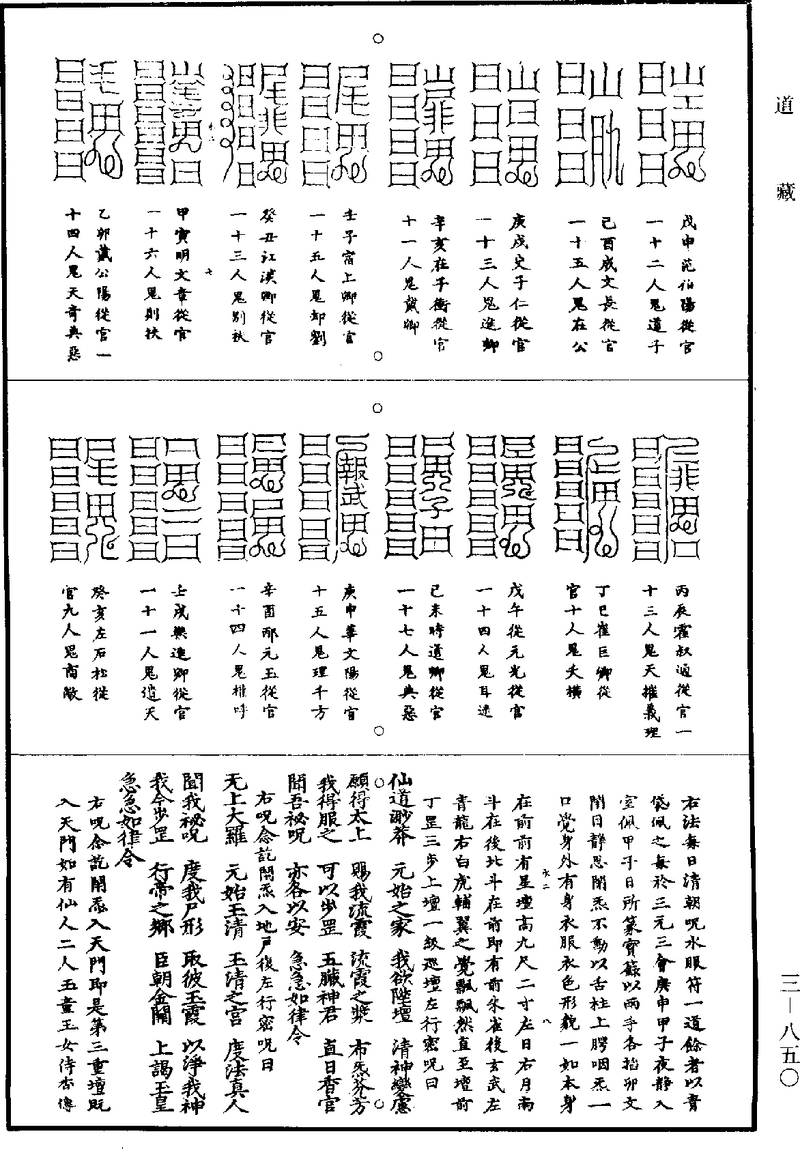 道藏
戊申范伯陽從官
一十二人鬼道子
己酉成文長從官
一十五人鬼在公
庚戌史子仁從官
一十三人鬼進卿
辛亥在子衡從官
十一人鬼賀卿
壬子富上卿從官
一十五人鬼却劉
癸丑江漢卿從官
一十三人鬼別秋
甲寅明文章從官
一十六人鬼則扶
乙卯戴公陽從官一
十四人鬼天奇典惡
丙辰霍叔通從官一
十三人鬼天摧義理
丁巳崔巨卿從
官十人鬼夫橫
戊午從元光從官
一十四人鬼耳達
己未時道卿從官
一十七人鬼典惡
庚申華文陽從官
十五人鬼理千方
辛酉邴元玉從官
一十四人鬼推呼
壬戌樂進卿從官
一十一人鬼道天
癸亥左石松從
官九人鬼商敵
右法每日清朝呪水服符一道餘者以青
袋佩之每於三元三會庚申甲子夜靜入
室佩甲子日所篆寶籙以兩手各掐卯文
閉目靜思閉炁不動以舌柱上腭咽炁一
口覺身外有身衣服衣色形貌一如本身
在前前有星壇高九尺二寸左日右月南
斗在後北斗在前即有前朱雀後玄武左
青龍右白虎輔翼之覺飄飄然直至壇前
丁罡三步上壇一級巡壇左行密呪曰
仙道渺莽 元始之家 我欲陞壇 清神變慮
願得太上 賜我流霞 流霞之漿 布炁芬芳
我得服之 可以步罡 五臟神君 直日香官
聞吾祕呪 亦各以安 急急如律令
右呪念訖閉炁入地戶後左行密呪曰
无上大羅 元始玉清 玉清之宮 度法真人
聞我祕呪 度我尸形 取彼玉霞 以淨我神
我今步罡 行帝之鄉 臣朝金闕 上謁玉皇
急急如律令
右呪念訖閉炁入天門即是第三重壇既
入天門如有仙人二人玉童玉女侍香傳
三—八五〇